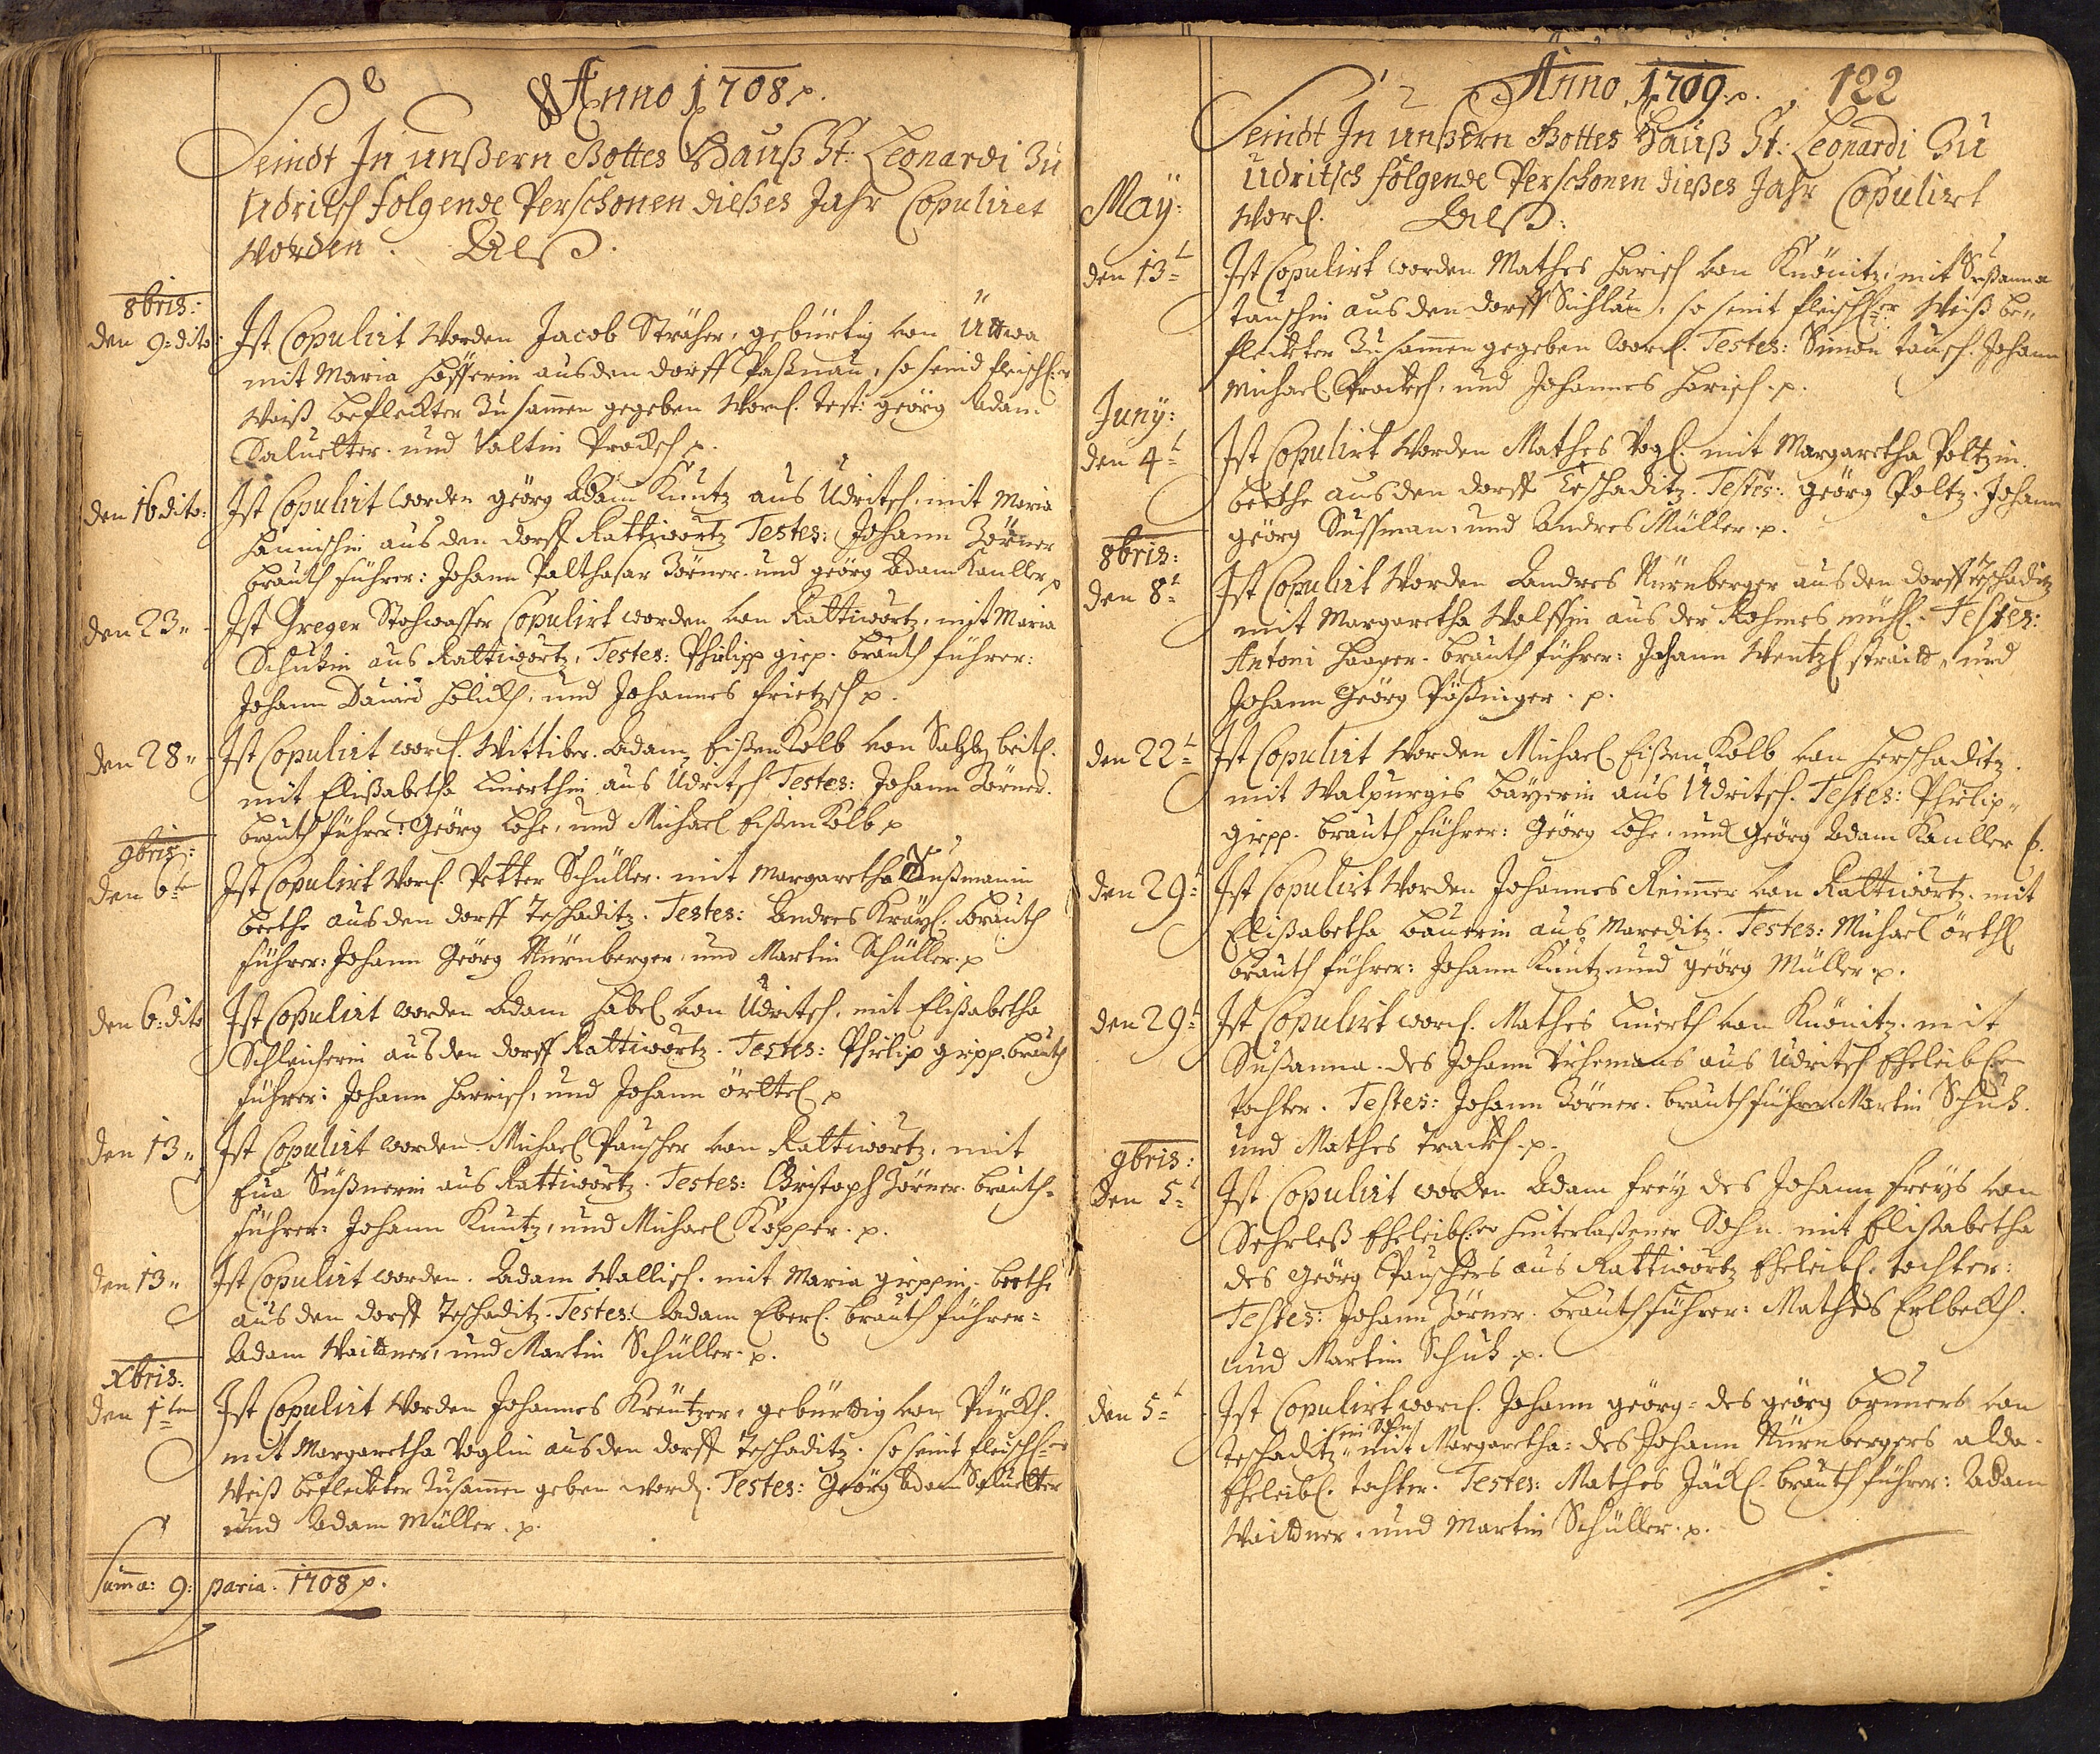 Anno 1708 p.
Seindt In unßern Gottes Hauß St: Leonardi Zu
Udritsch folgende Perschonen dießes Jahr Copuliret
worden. Alß.
8bris:
den 9: dito: Ist Copulirt worden Jacob Sträher, gebürtig von Uttwa
mit Maria aus den dorff Paßnau, so seind fleischl:er
Weiß befleckter Zusamen gegeben word. Test: geörg Adam
Saluetter und Valtin Procksch p.
den 16 dito: Ist Copulirt worden geörg Adam Kuntz aus Udritsch, mit Maria
aus den dorff Rattiwörtz Testes: Johann Zörner
brauth führer: Johann Palthasar Zörner und geörg Adam Kauller p
den 23" Ist Greger Stohwasser Copulirt worden von Rattiwörtz, mit Maria
Schutzin aus Rattiwörtz, Testes: Philipp giep. brauth führer:
Johann Dauid und Johannes frietzsch p.
den 28" Ist Copulirt word. Wittiber Adam EißenKolb von
mit Elißabetha aus Udritsch Testes: Johann Zörner.
brauth führer: Geörg Lohr, und Michael EißenKolb p
9bris:
den 6te Ist Copulirt word. Petter Schüller mit Margaretha
beethe aus den dorff Teschaditz. Testes: Andres brauth
führer: Johann Geörg Nürnberger, und Martin Schüller p
den 6: dito Ist Copulirt worden Adam Habel von Udritsch, mit Elißabetha
Schleicherin aus den dorff Rattiwörtz. Testes: Philip gipp. brauth
führer: Johann Harrisch, und Johann örttel p
den 13" Ist Copulirt worden Michael Pauscher von Rattiwörtz, mit
Eua Süßnerin aus Rattiwörtz. Testes: Christoph Zörner brauth-
führer: Johann Kuntz, und Michael Kopper p.
den 13" Ist Copulirt worden. Adam Wallisch mit Maria gieppin, beethe
aus den dorff Teschaditz. Testes. Adam Eberl. brauth führer:
Adam Waittner, und Martin Schüller p.
xbris:
den 1ten Ist Copulirt worden Johannes Kreutzer, gebürdtig von
mit Margaretha Voglin aus den dorff Teschaditz. so seint fleischl:er
Weiß befleckter Zusamen geben word. Testes: Geörg Adam Saluetter
und Adam Müller. p.
Suma: 9: paria. 1708 p.
Anno 1709. p. 122
Seindt In unßern Gottes Hauß St: Leonardi Zu
Udritsch folgende Perschonen dießes Jahr Copulirt
word. Alß:
May:
den 13t Ist Copulirt worden Mathes Harisch von Knönitz, mit Sußanna
tauschin aus den dorff so seint fleischl:er Weiß be-
fleckter Zusamen gegeben word. Testes: Simon tausch. Johann
Michael Procksch, und Johannes Harisch p.
Juny:
den 4t Ist Copulirt worden Mathes Vogl. mit Margaretha Poltzin.
beethe aus den dorff Teschaditz. Testes: geörg Poltz. Johann
geörg Sussman, und Andres Müller p.
8bris:
den 8t Ist Copulirt worden Andres Nürnberger aus den dorff Teschaditz
mit Margaretha Wolffin aus der Rohmes mühl. Testes:
Antoni Haager. brauth führer: Johann Wentzl und
Johann Geörg Pößinger. p.
den 22t Ist Copulirt worden Michael EißenKolb von Herschaditz.
mit Walpurgis Bayerin aus Udritsch. Testes: Philip
giepp. brauth führer: Geörg Lohr. und Geörg Adam Kauller p.
den 29t Ist Copulirt worden Johannes Reimer von Rattiwörtz. mit
Elißabetha Bauerin aus Mareditz. Testes: Michael örthl
brauth führer: Johann Kuntz und geörg Müller p.
den 29t Ist Copulirt word. Mathes von Knönitz. mit
Sußanna. des Johann aus Udritsch Eheleibl:er
Tochter. Testes: Johann Zörner. brauth führer Martin Schutz
und Mathes p.
9bris:
den 5t Ist Copulirt worden Adam Frey des Johann Freys von
Sehrleß Eheleibl:er hinterlaßener Sohn mit Elißabetha
des Geörg Pauschers aus Rattiwörtz Eheleibl. tochter:
Testes: Johann Zörner. brauth führer: Mathes Erlbeckh.
und Martin Schutz p.
den 5t Ist Copulirt word. Johann geörg: des geörg bruners von
Teschaditz ein Sohn mit Margaretha: des Johann Nürnbergers alda
Eheleibl. tochter. Testes: Mathes Jäckl. brauth führer: Adam
Waittner, und Martin Schüller. p.